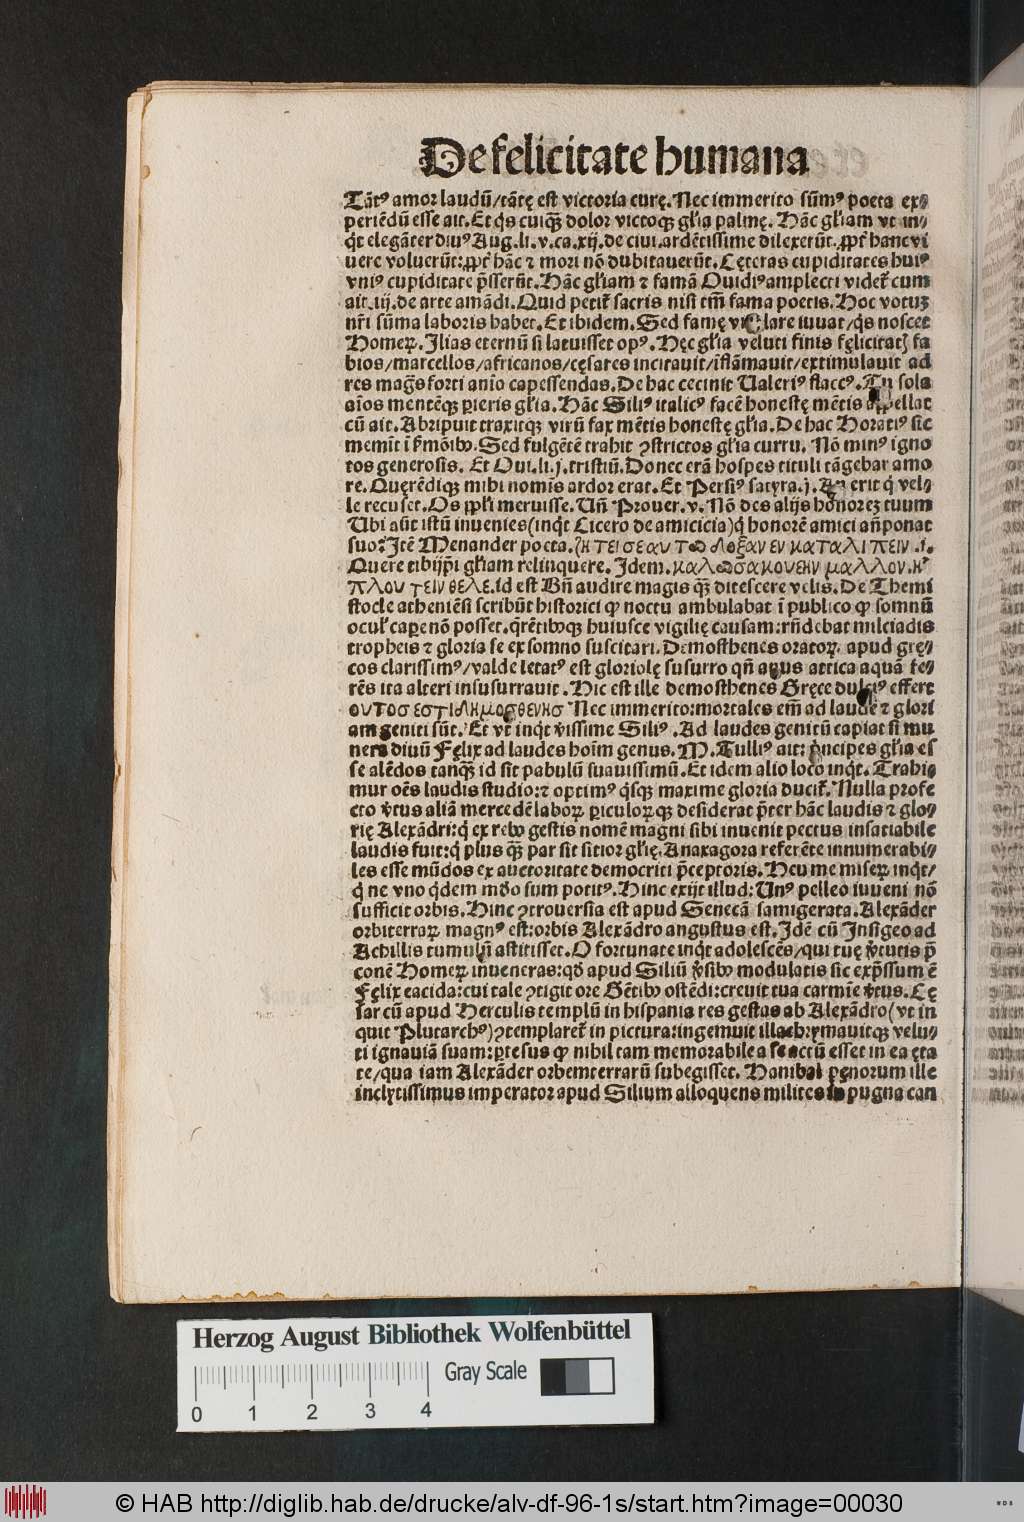 De felicitate humana
Tãtꝰ amor laudũ/tãtę est victoria curę. Nec immerito sũmꝰ poeta ex⸗
periẽdũ esse ait. Et q̃s cuiqꝫ dolor victoqꝫ gl'ia palmę. Hãc gl'iam vt in⸗
q̃t elegãter diuꝰ Aug. li. v. ca. xij. de ciui. ardẽtissime dilexerũt. ꝓpt' hanc vi
uere voluerũt: ꝓpt' hãc ⁊ mori nõ dubitauerũt. Cęteras cupiditates huiꝰ
vniꝰ cupiditate p̃sserũt. Hãc gl'iam ⁊ famã Ouidiꝰ amplecti videt' cum
ait. iij. de arte amãdi. Quid petit' sacris nisi tm̃ fama poetis. Hoc votuꝫ
nr̃i sũma laboris habet. Et ibidem. Sed famę vi lare iuuat/q̃s noscet
Homeꝝ. Ilias eternũ si latuisset opꝰ. Hęc gl'ia veluti finis fęlicitatꝭ fa
bios/marcellos/africanos/cęsares incitauit/ĩflãmauit/extimulauit ad
res mag̃s forti anĩo capessendas. De hac cecinit Ualeriꝰ flaccꝰ. Tu sola
aĩos mentẽqꝫ ꝑeris gl'ia. Hãc Siliꝰ italicꝰ facẽ honestę mẽtis appellat
cũ ait. Abripuit traxitqꝫ virũ fax mẽtis honestę gl'ia. De hac Horatiꝰ sic
meminit ĩ s'mõibꝰ. Sed fulgẽtẽ trahit ꝯstrictos gl'ia curru. Nõ minꝰ igno
tos generosis. Et Oui. li. j. tristiũ. Donec erã hospes tituli tãgebar amo
re. Quęrẽdiqꝫ mihi nomĩs ardor erat. Et Persiꝰ satyra. j. An erit q̃ vel⸗
le recuset. Os ppl'i meruisse. Uñ Prouer. v. Nõ des alijs honoreꝫ tuum
Ubi aũt istũ inuenies (inq̃t Cicero de amicicia) q̃ honorẽ amici añponat
suo? Itẽ Menander poeta. ζη τει σεαυ τω δοξαν εν καταλι πειν .i.
Quere tibijp̃i gl'iam relinquere. Idem. καλωσακουειν μαλλον. η
πλου τειν θελε. id est Bñ audire magis qꝫ ditescere velis. De Themi
stocle atheniẽsi scribũt historici ꝙ noctu ambulabat ĩ publico ꝙ somnũ
ocul' caꝑe nõ posset. q̃rẽtibꝰqꝫ huiusce vigilię causam: rñdebat milciadis
tropheis ⁊ gloria se ex somno suscitari. Demosthenes oratoꝝ. apud gre⸗
cos clarissimꝰ/valde letatꝰ est gloriolę susurro qñ anus attica aquã fe⸗
rẽs ita alteri insusurrauit. Hic est ille demosthenes Gręce dulciꝰ effert
ουτοσ εστι δημοσθενησ Nec immerito: mortales em̃ ad laudẽ ⁊ glori
am geniti sũt. Et vt inq̃t v̾issime Siliꝰ. Ad laudes genitũ capiat si mu
nera diuũ Fęlix ad laudes hoĩm genus. M. Tulliꝰ ait: p̃ncipes gl'ia es
se alẽdos tanqꝫ id sit pabulũ suauissimũ. Et idem alio loco inq̃t. Trahi⸗
mur oẽs laudis studio: ⁊ optimꝰ q̃sqꝫ maxime gloria ducit'. Nulla profe
cto v̾tus aliã mercedẽ laboꝝ ꝑiculoꝝqꝫ desiderat p̃ter hãc laudis ⁊ glo⸗
rię Alexãdri: q̃ ex rebꝰ gestis nomẽ magni sibi inuenit pectus insatiabile
laudis fuit: q̃ plus qꝫ par sit sitior gl'ię. Anaxagora referẽte innumerabi⸗
les esse mũdos ex auctoritate democriti p̃ceptoris. Heu me miseꝝ inq̃t/
q̃ ne vno q̃dem mũdo sum potitꝰ. Hinc exijt illud: Unꝰ pelleo iuueni nõ
sufficit orbis. Hinc ꝯtrouersia est apud Senecã famigerata. Alexãder
orbiterraꝝ magnꝰ est: orbis Alexãdro angustus est. Idẽ cũ In sigeo ad
Achillis tumulũ astitisset. O fortunate inq̃t adolescẽs/qui tuę v̾tutis p̃
conẽ Homeꝝ inueneras: qđ apud Siliũ v̾sibꝰ modulatis sic exp̃ssum ẽ
Fęlix eacida: cui tale ꝯtigit ore Gẽtibꝰ ostẽdi: creuit tua carmĩe v̾tus. Cę
sar cũ apud Herculis templũ in hispania res gestas ab Alexãdro (vt in
quit Plutarchꝰ) ꝯtemplaret' in pictura: ingemuit illachrymauitqꝫ velu⸗
ti ignauiã suam: ꝑtesus ꝙ nihil tam memorabile a se actũ esset in ea ęta
te/qua iam Alexãder orbemterrarũ subegisset. Hanibal pęnorum ille
inclytissimus imperator apud Silium alloquens milites in pugna can
Herzog August Bibliothek Wolfenbüttel
Gray Scale
0 1 2 3 4
© HAB http://diglib.hab.de/drucke/alv-df-96-1s/start.htm?image=00030